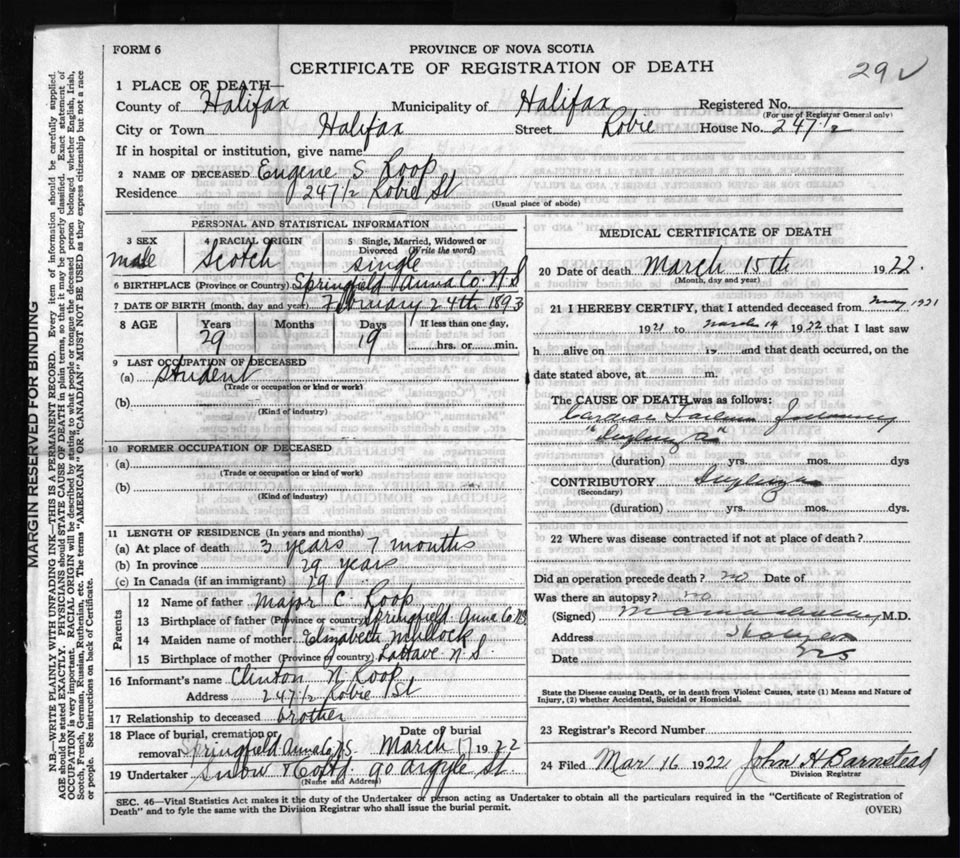 FORM 6
PROVINCE OF NOVA SCOTIA
CERTIFICATE OF REGISTRATION OF DEATH
29 V
1 PLACE OF DEATH—
County of Halifax Municipality of Halifax Registered No.
(For use of Registrar General only)
City or Town Halifax Street Robie House No. 247 1/2
If in hospital or institution, give name
2 NAME OF DECEASED Eugene S Roop
Residence 247 1/2 Robie St
(Usual place of abode)
PERSONAL AND STATISTICAL INFORMATION
3 SEX male
4 RACIAL ORIGIN Scotch
5 Single, Married, Widowed or Divorced (Write the word) single
6 BIRTHPLACE (Province or Country) Springfield Anna Co. N.S
7 DATE OF BIRTH (month, day and year) February 24th 1893
8 AGE Years 29 Months Days 19 If less than one day, hrs. or min.
9 LAST OCCUPATION OF DECEASED
(a) Student
(Trade or occupation or kind or work)
(b)
(Kind of industry)
10 FORMER OCCUPATION OF DECEASED
(a)
(Trade or occupation or kind of work)
(b)
(Kind of industry)
11 LENGTH OF RESIDENCE (In years and months)
(a) At place of death 3 years 7 months
(b) In province 29 years
(c) In Canada (if an immigrant) 29
Parents
12 Name of father Major C. Roop
13 Birthplace of father (Province or country) Springfield Anna Co NS
14 Maiden name of mother Elizabeth Mullock
15 Birthplace of mother (Province or country) N.S.
16 Informant's name Clinton N. Roop
Address 247 1/2 Robie St
17 Relationship to deceased brother
18 Place of burial, cremation or removal Springfield Anna Co N.S. Date of burial March 17 1922
19 Undertaker Snow & Co Ltd 90 Argyle St.
(Name and Address)
MEDICAL CERTIFICATE OF DEATH
20 Date of death March 15th 1922.
(Month, day and year)
21 I HEREBY CERTIFY, that I attended deceased from May 1921
1921 to March 14 1922 that I last saw
h alive on 19 and that death occurred, on the
date stated above, at m.
The CAUSE OF DEATH was as follows:
Cardiac Failure
(duration) yrs. mos. dys
CONTRIBUTORY
(Secondary)
(duration) yrs. mos. dys.
22 Where was disease contracted if not at place of death?
Did an operation precede death? no Date of
Was there an autopsy? no
(Signed) M.D.
Address
Date
State the Disease causing Death, or in death from Violent Causes, state (1) Means and Nature of
Injury, (2) whether Accidental, Suicidal or Homicidal.
23 Registrar's Record Number
24 Filed Mar 16 1922 John H Barnstead
Division Registrar
SEC. 46—Vital Statistics Act makes it the duty of the Undertaker or person acting as Undertaker to obtain all the particulars required in the "Certificate of Registration of
Death" and to fyle the same with the Division Registrar who shall issue the burial permit.
(OVER)
MARGIN RESERVED FOR BINDING
N.B.—WRITE PLAINLY WITH UNFADING INK—THIS IS A PERMANENT RECORD. Every item of information should be carefully supplied.
AGE should be stated EXACTLY. PHYSICIANS should STATE CAUSE OF DEATH in plain terms, so that it may be properly classified. Exact statement of
OCCUPATION is very important. RACIAL ORIGIN will be described by stating to what people or tongue the deceased person belonged whether English, Irish,
Scotch, French, German, Russian, Ruthenian, etc. The terms "AMERICAN" OR "CANADIAN" MUST NOT BE USED as they express citizenship but not a race
or people. See instructions on back of Certificate.